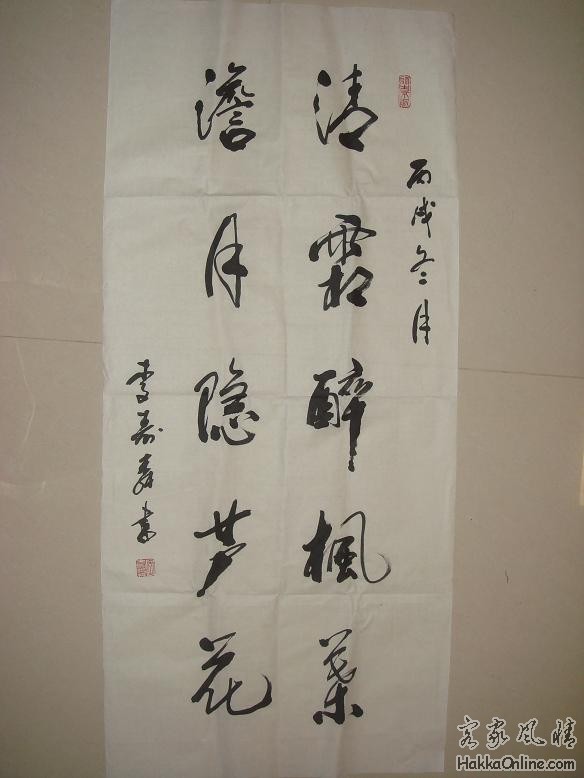 丙戌冬月
清霜醉楓葉
澹月隐芦花
李寿森书
客家風情
HakkaOnline.com